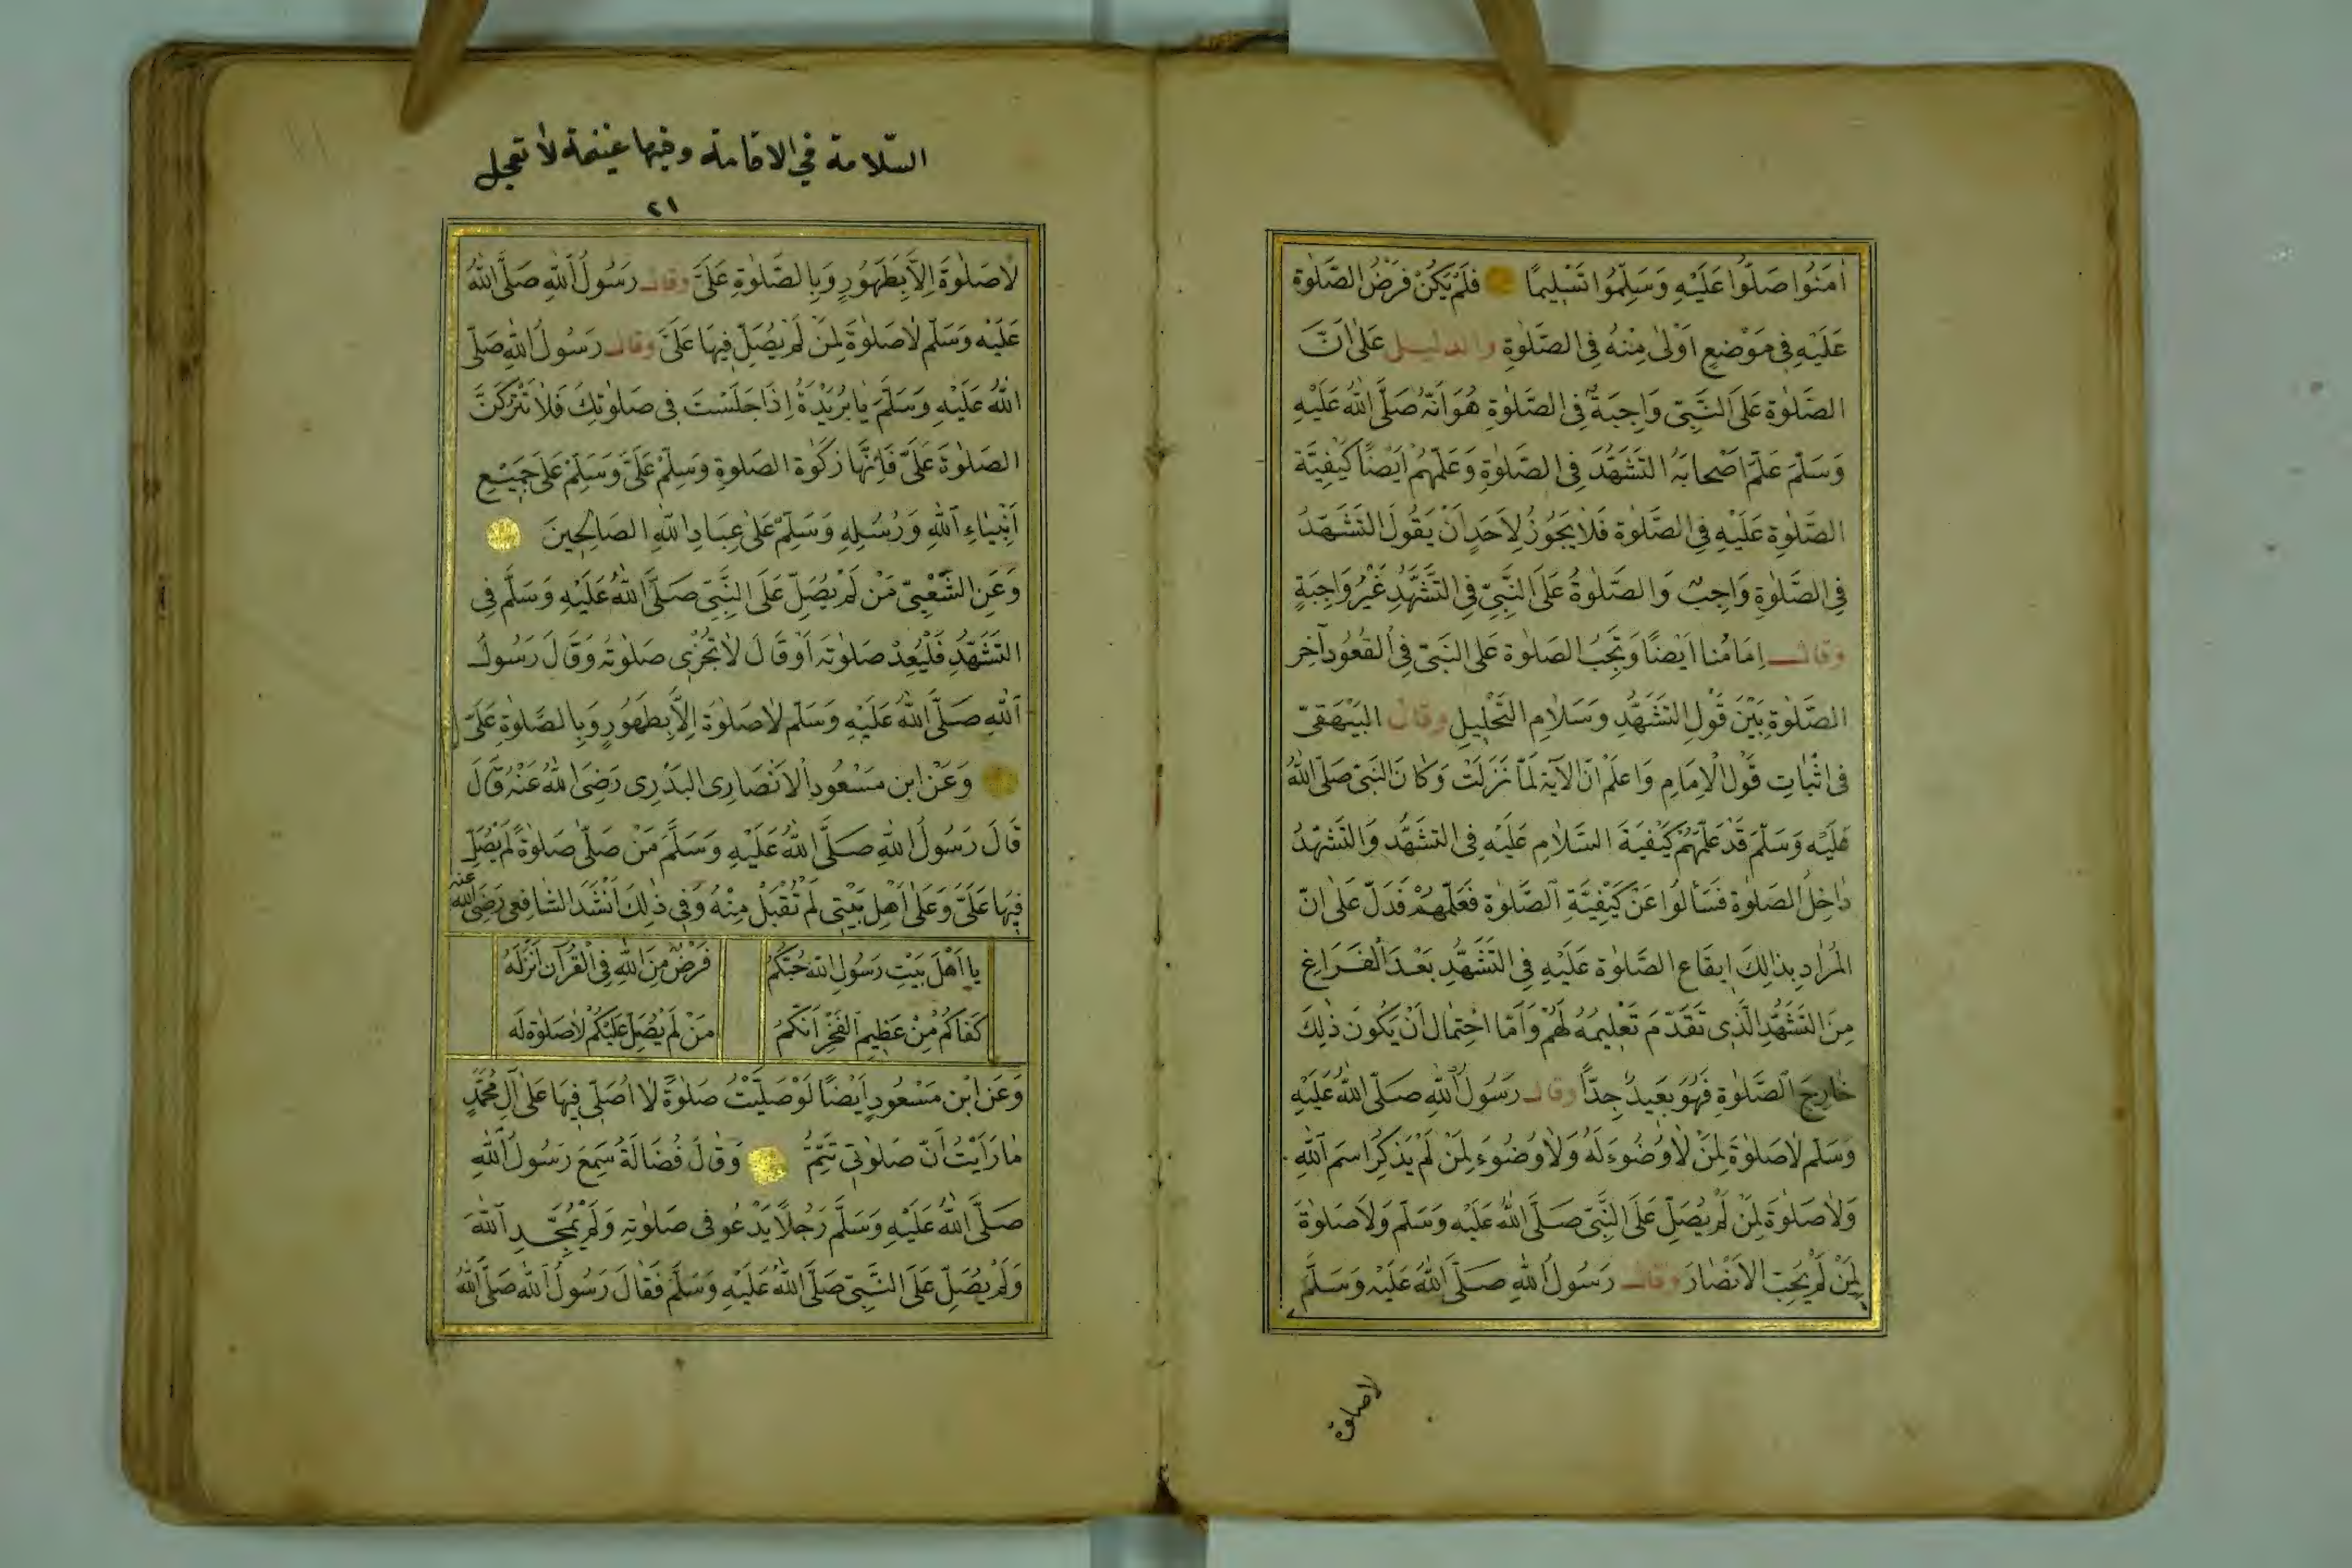 اٰمَنُوا صَلُّوا عَلَيْهِ وَسَلِّمُوا تَسْلِيمًا فَلَمْ يَكُنْ فَرْضُ الصَّلٰوةِ
عَلَيْهِ فِي مَوْضِعٍ اَوْلٰى مِنْهُ فِي الصَّلٰوةِ والدليل عَلٰى اَنَّ
الصَّلٰوةِ عَلَى النَّبِيّ وَاجِبَةٌ فِي الصَّلٰوةِ هُوَ اَنَّهُ صَلَّى اللّٰهُ عَلَيْهِ
وَسَلَّمَ عَلَّمَ اَصْحَابَهُ التَّشَهُّدَ فِي الصَّلٰوةِ وَعَلَّمَهُمْ اَيْضًا كَيْفِيَّةَ
الصَّلٰوةِ عَلَيْهِ فِي الصَّلٰوةِ فَلَا يَجُوزُ لِاَحَدٍ اَنْ يَقُولَ التَّشَهُّدُ
فِي الصَّلٰوةِ وَاجِبٌ وَالصَّلٰوةُ عَلَى النَّبِيِّ فِي التَّشَهُّدِ غَيْرُ وَاجِبَةٍ
وقال اِمَامُنَا اَيْضًا وَتَجِبُ الصَّلٰوة عَلَى النَّبِيّ فِي الْقُعُودِ آخِر
الصَّلٰوةِ بَيْنَ قَوْلِ التَّشَهُّدِ وَسَلَامِ التَّحْلِيلِ وقال البَيْهَقِيّ
فِي اثْبَاتِ قَوْلِ الْاِمَامِ وَاعلَمْ انّ الآيَة لَمَّا نَزَلَتْ وَكَانَ النَّبِيّ صَلَّى اللّٰهُ
عَلَيْهِ وَسَلَّمَ قَدْ عَلَّمَهُمْ كَيْفِيَةَ السَّلَامِ عَلَيْهِ فِي التَشَهُّدِ وَالتَّشَهُّدُ
دَاخِلُ الصَلٰوة فَسَألُوا عَنْ كَيْفِيَّةِ الصَّلٰوة فَعَلَّمَهُمْ فَدَلَّ عَلٰى انّ
الْمُرَادِ بِذٰلِكَ اِيقَاع الصَّلٰوة عَلَيْهِ فِي التَّشَهُّدِ بَعْدَ الْفَرَاغِ
مِنَ التَّشَهُّدِ الَّذِي تَقَدَّمَ تَعْلِيمُهُ لَهُمْ وَاَمَّا احْتِمَال اَنْ يَكُونَ ذٰلِكَ
خَارِجَ الصَّلٰوةِ فَهُوَ بَعِيدٌ جِدًّا وقال رَسُولُ اللّٰهِ صَلَّى اللّٰهُ عَلَيْهِ
وَسَلَّم لَا صَلٰوةَ لِمَنْ لَا وُضُوءَ لَهُ وَلَا وُضُوءَ لِمَنْ لَمْ يَذْكُرِ اسمَ اللّٰهِ
وَلَا صَلٰوةَ لِمَنْ لَمْ يُصَلِّ عَلَى النَّبِيّ صَلَّى اللّٰهُ عَلَيْهِ وَسَلَّم وَلَا صَلٰوةَ
لِمَنْ لَمْ يُحِبّ الْاَنْصَارَ وقال رَسُولُ اللّٰهِ صَلَّى اللّٰهُ عَلَيْهِ وَسَلَّمَ
لاصلوة
السّلامة في الاقامة وفيها غنيمة لا تعجل
٢١
لَا صَلٰوةَ اِلَّا بِطَهُورٍ وَبِالصَّلٰوةِ عَلَىَّ وقال رَسُولُ اللّٰهِ صَلَّى اللّٰهُ
عَلَيْهِ وَسَلَّم لَا صَلٰوةَ لِمَنْ لَمْ يُصَلِّ فِيهَا عَلَىَّ وقال رَسُولُ اللّٰهِ صَلَّى
اللّٰهُ عَلَيْهِ وَسَلَّمَ يَا بُرَيْدَةُ اِذَا جَلَسْتَ فِي صَلٰوتِكَ فَلَا تَتْرُكَنَّ
الصَلٰوةَ عَلَىَّ فَاِنَّهَا زَكٰوة الصَلٰوةِ وَسَلِّمْ عَلَىَّ وَسَلِّمْ عَلَى جَمِيْعِ
اَنْبِيَاءِ اللّٰهِ وَرُسُلِهِ وَسَلِّمْ عَلٰى عِبَادِ اللّٰهِ الصَّالِحِينَ
وَعَنِ الشَّعْبِيّ مَنْ لَمْ يُصَلِّ عَلَى النَّبِيّ صَلَّى اللّٰهُ عَلَيْهِ وَسَلَّم فِي
التَّشَهُّدِ فَلْيُعِدْ صَلٰوتَهُ اَوْ قَالَ لَا تُجْزِي صَلٰوتُهُ وَقَالَ رَسُولُ
اللّٰهِ صَلَّى اللّٰهُ عَلَيْهِ وَسَلَّم لَا صَلٰوةَ اِلَّا بِطَهُورٍ وَبِالصَّلٰوةِ عَلَىَّ
وَعَنْ ابن مَسْعُودِ الْاَنْصَارِى البَدْرِى رَضِىَ اللّٰهُ عَنْهُ قَالَ
قَالَ رَسُولُ اللّٰهِ صَلَّى اللّٰهُ عَلَيْهِ وَسَلَّمَ مَنْ صَلّٰى صَلٰوةً لَمْ يُصَلِّ
فِيهَا عَلَىَّ وَعَلٰى اَهْلِ بَيْتِي لَمْ تُقْبَلْ مِنْهُ وَفِي ذٰلِكَ اَنْشَدَ الشَافِعِى رَضِىَ اللّٰه عنه
يَا اَهْلَ بَيْتِ رَسُولِ اللّٰهِ حُبُّكُمُ فَرْضٌ مِنَ اللّٰهِ فِي الْقُرْآنِ اَنْزَلَهُ
كَفَاكُمُ مِنْ عَظِيمِ الْفَخْرِ اَنَّكُمُ مَنْ لَمْ يُصَلِّ عَلَيْكُمْ لَا صَلٰوةَ لَه
وَعَن ابْن مَسْعُودٍ اَيْضًا لَوْ صَلَّيْتُ صَلٰوةً لَا اُصَلِّي فِيهَا عَلٰى آلِ مُحَمَّدٍ
مَا رَأَيْتُ اَنّ صَلٰوتِي تَتِمُّ وَقَالَ فُضَالَةُ سَمِعَ رَسُولُ اللّٰهِ
صَلَّى اللّٰهُ عَلَيْهِ وَسَلَّم رَجُلًا يَدْعُو فِي صَلٰوتِهِ وَلَمْ يُمَجِّدِ اللّٰهَ
وَلَمْ يُصَلِّ عَلَى النَّبِيّ صَلَّى اللّٰهُ عَلَيْهِ وَسَلَّمَ فَقَالَ رَسُولُ اللّٰه صَلَّى اللّٰهُ